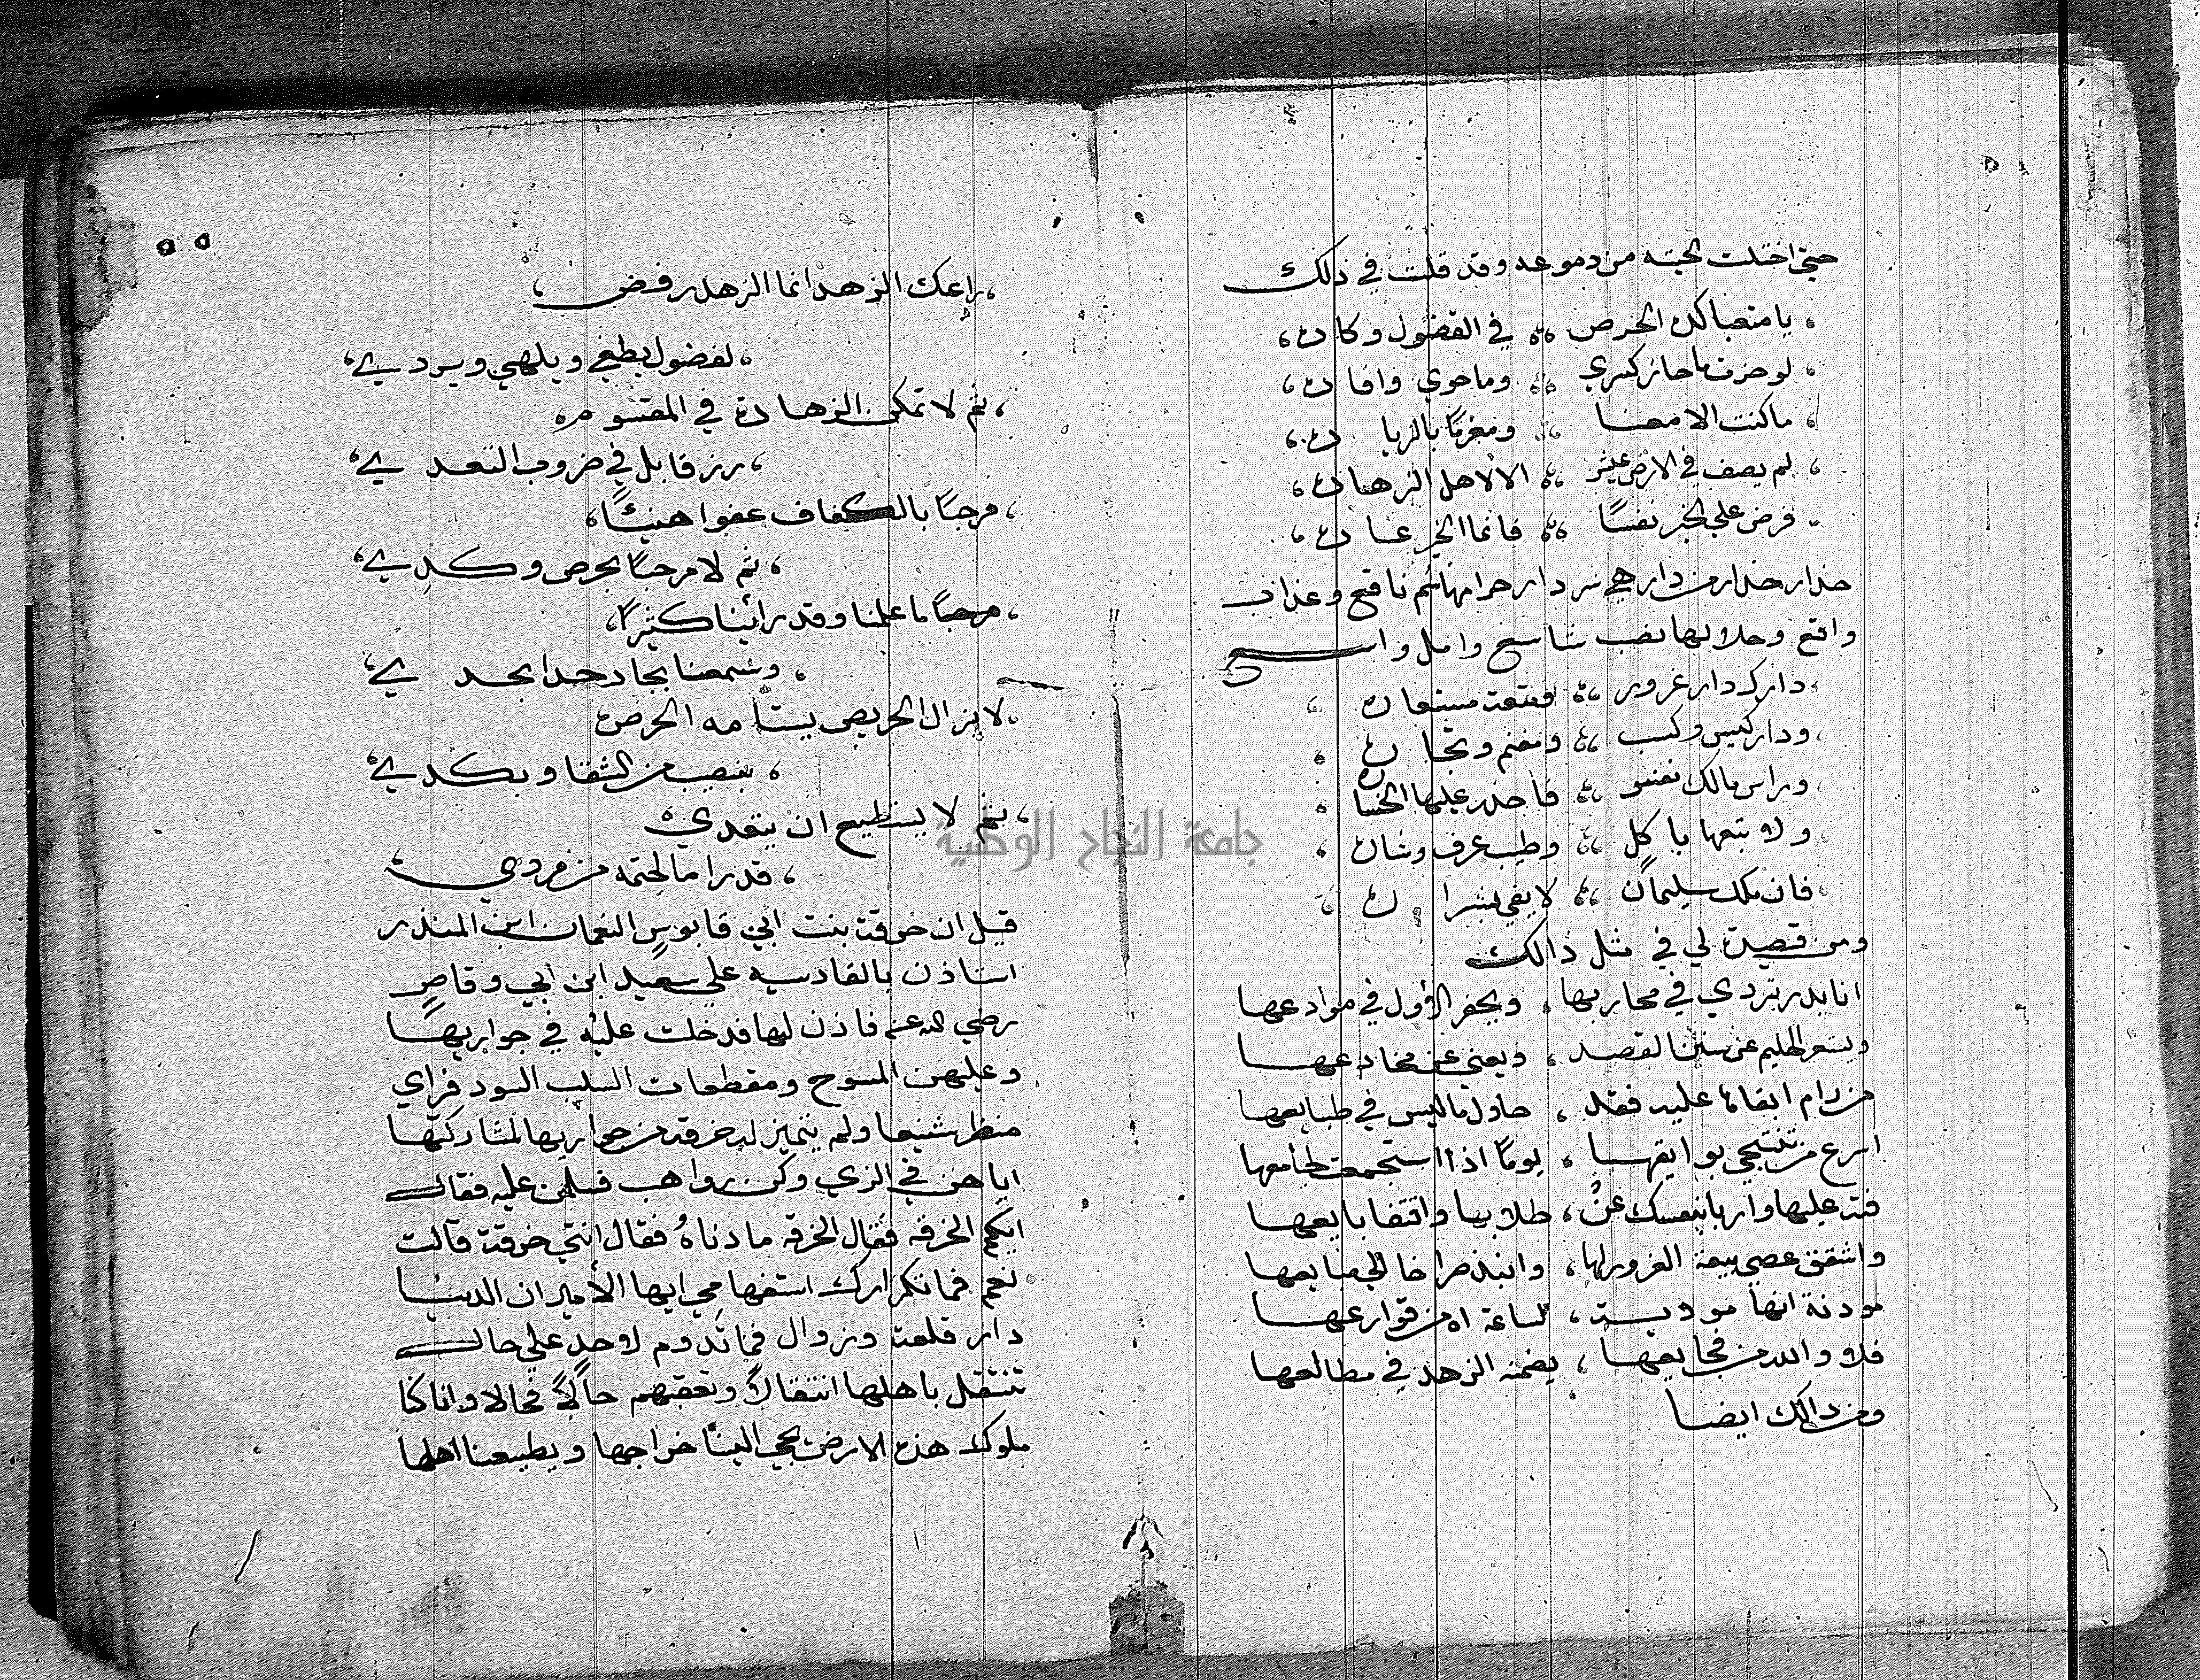 حتى اخضلت لحيته من دموعه وقد قلت في ذلك
يا متعبا كده الحرص في الفضول وكاده
لو حزت ما حاز كسري وما حوي وافاده
ما كنت الا معنا ومغرمًا بالزياده
لم يصف في الارض عيش الا لاهل الزهاده
فرض علي الخير نفسًا فانما الخير عاده
حذار حذار من دار هي دار حرامها سم ناقع وعذاب
واقع وحلالها نصب شاسع وامل واسع
دارك دار غرور ومتعة مستعاره
ودار كيس وكسب ومغنم وتجاره
وراس مالك نفس فاحذر عليها الخساره
ولا تبعها باكل وطيب عرف وشاره
فان ملك سليمان لا يفي بشراره
ومن قصيدة لي في مثل ذالك
انا بدر تردي في محاربها ويحفر الؤول في موادعها
ويستعر الحليم عن سنن القصد ويعني عن مخادعها
من رام ابقاها عليه فقد حاول ما ليس في طبايعها
اسرع من تنتحي بوايقها يومًا اذا استجمعت لجامعها
فته عليها واربا بنفسك عن طلابها واتقا بايعها
واشقق عصي بيعة الغرور لها وانبذ صراخا الي مبايعها
موذنة انها مودية لساعة اه من قوارعها
فلا والله من فجايعها يضمنه الزهد في مطالعها
ومن ذالك ايضا
راعك الزهد انما الزهد رفض
لفضول يطغي ويلهي ويردي
ثم لا تمكن الزهادة في المقسوم
رزقا بل في ضروب التعدي
مرحبًا بالكفاف عفوا هنيئًا
ثم لا مرحبًا بحرص وكدي
مرحبًا ما علمنا وقد رأينا كثيرًا
وسمعنا بجاد حدا بحدي
لا يزال الحريص يستامه الحرص
بنصب من الشقا وبكدي
ثم لا يستطيع ان يتعدي
قدرا ما لحتمه من مردي
قيل ان خرقة بنت ابي قابوس النعمان ابن المنذر
استاذن بالقادسيه علي سعيد ابن ابي وقاص
رضي الله عنه فاذن لها فدخلت عليه في جواريها
وعليهن المسوح ومقطعات السلب السود فراي
منظر شنيعا ولم يتميز له خرقة من جواريها لمشاركتها
اياهن في الزي وكن رواهب فسلمن عليه فقال
ايكم الخرقه فقال الخرقه ما دناهُ فقال انتي خرقة قالت
نعم فما تكرارك استفهامي ايها الأمير ان الدنيا
دار قلعة وزوال فما تدوم لاحدٍ علي حال
تنتقل باهلها انتقالاً وتعقبهم حالاً فحالا وانا كنا
ملوك هذه الارض يجي الينا خراجها ويطيعنا اهلها
جامعة النجاح الوطنية